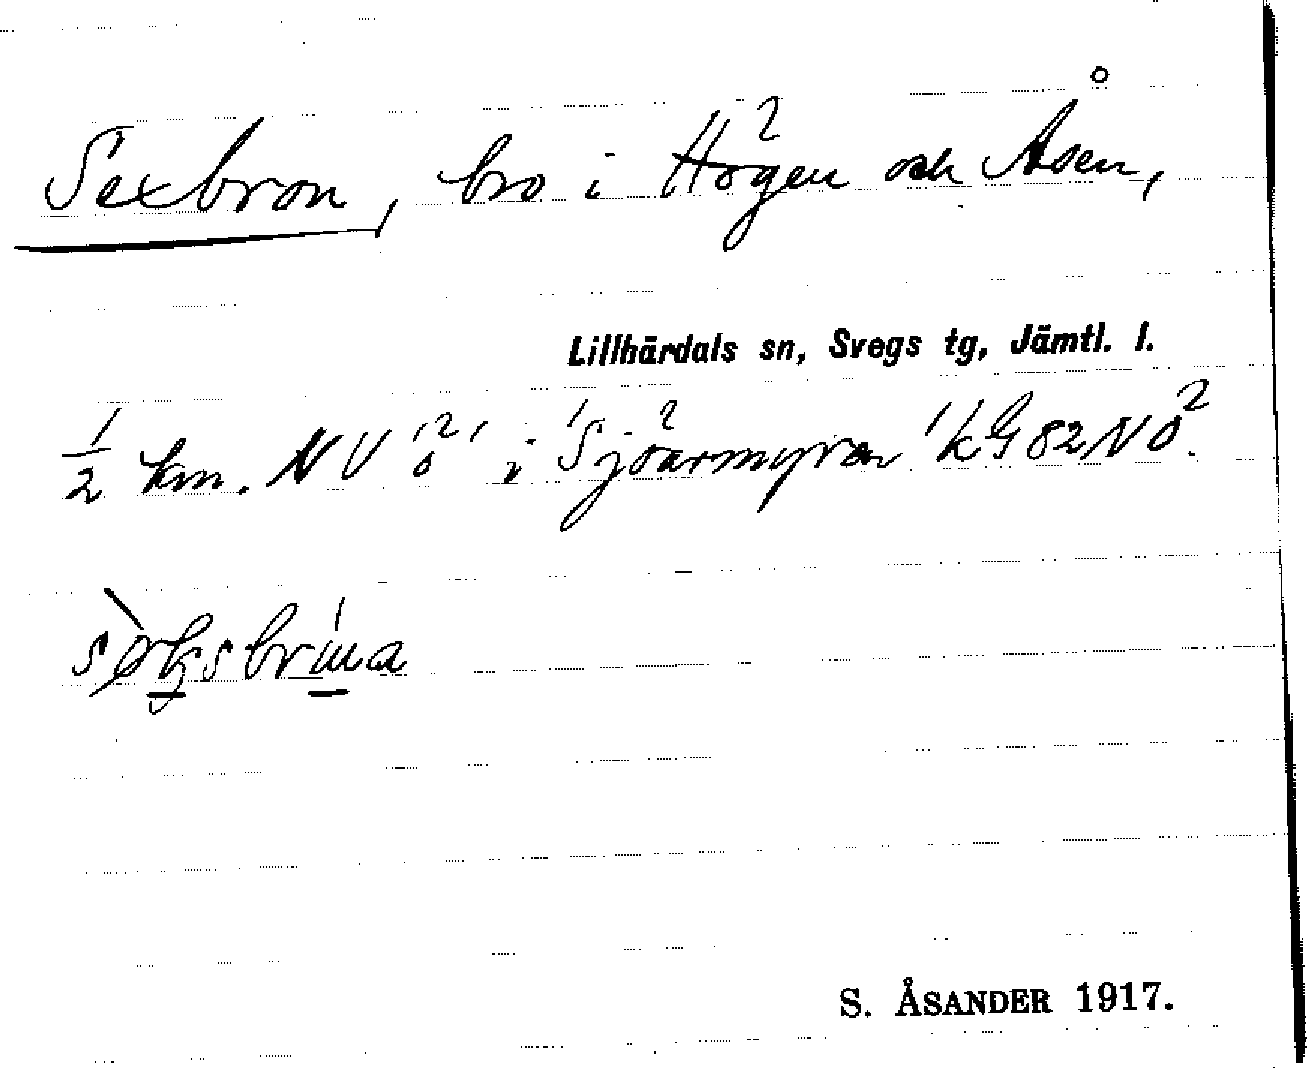 Sexbron, bro i Högen och Åsen,
Lillhärdals sn, Svegs tg, Jämtl. l.
1/2 km. NV ö i Sjöarmyran kG82NÖ.
S. ÅSANDER 1917.